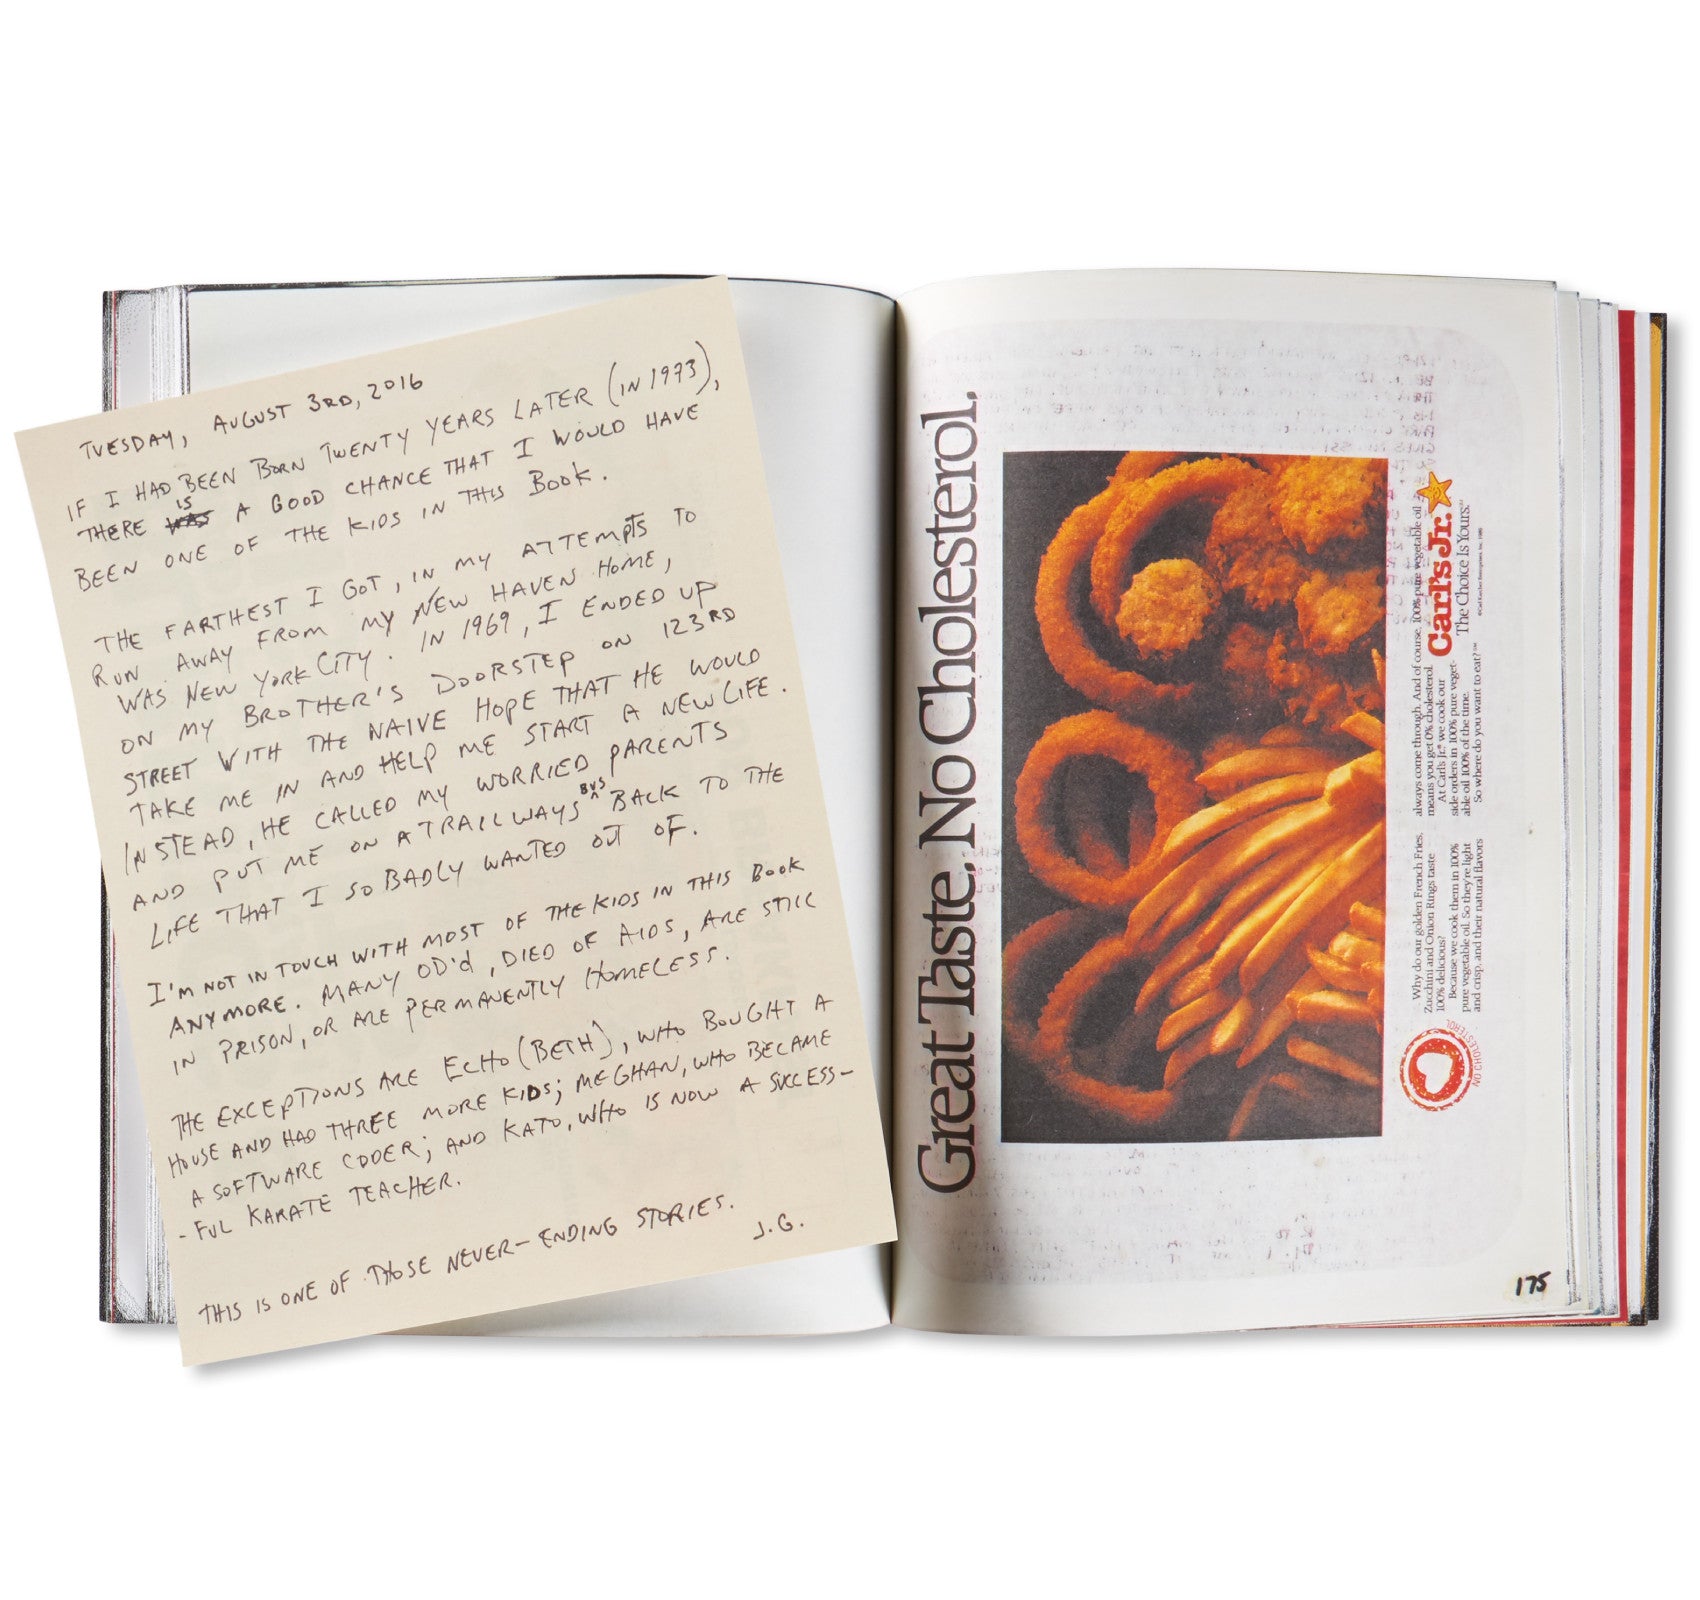 TUESDAY, AUGUST 3RD, 2016
IF I HAD BEEN BORN TWENTY YEARS LATER (IN 1973),
THERE WAS IS A GOOD CHANCE THAT I WOULD HAVE
BEEN ONE OF THE KIDS IN THIS BOOK.
THE FARTHEST I GOT, IN MY ATTEMPTS TO
RUN AWAY FROM MY NEW HAVEN HOME,
WAS NEW YORK CITY. IN 1969, I ENDED UP
ON MY BROTHER'S DOORSTEP ON 123RD
STREET WITH THE NAIVE HOPE THAT HE WOULD
TAKE ME IN AND HELP ME START A NEW LIFE.
INSTEAD, HE CALLED MY WORRIED PARENTS
AND PUT ME ON A TRAILWAYS BUS BACK TO THE
LIFE THAT I SO BADLY WANTED OUT OF.
I'M NOT IN TOUCH WITH MOST OF THE KIDS IN THIS BOOK
ANYMORE. MANY OD'd, DIED OF AIDS, ARE STILL
IN PRISON, OR ARE PERMANENTLY HOMELESS.
THE EXCEPTIONS ARE ECHO (BETH), WHO BOUGHT A
HOUSE AND HAD THREE MORE KIDS; MEGHAN, WHO BECAME
A SOFTWARE CODER; AND KATO, WHO IS NOW A SUCCESS-
-FUL KARATE TEACHER.
THIS IS ONE OF THOSE NEVER-ENDING STORIES.
J.G.
Great Taste. No Cholesterol.
Why do our golden French Fries,
Zucchini and Onion Rings taste
100% delicious?
Because we cook them in 100%
pure vegetable oil. So they're light
and crisp, and their natural flavors
always come through. And of course, 100% pure vegetable oil
means you get 0% cholesterol.
At Carl's Jr.® we cook our
side orders in 100% pure veget-
able oil 100% of the time.
So where do you want to eat?™
Carl's Jr.
The Choice Is Yours.
NO CHOLESTEROL
175